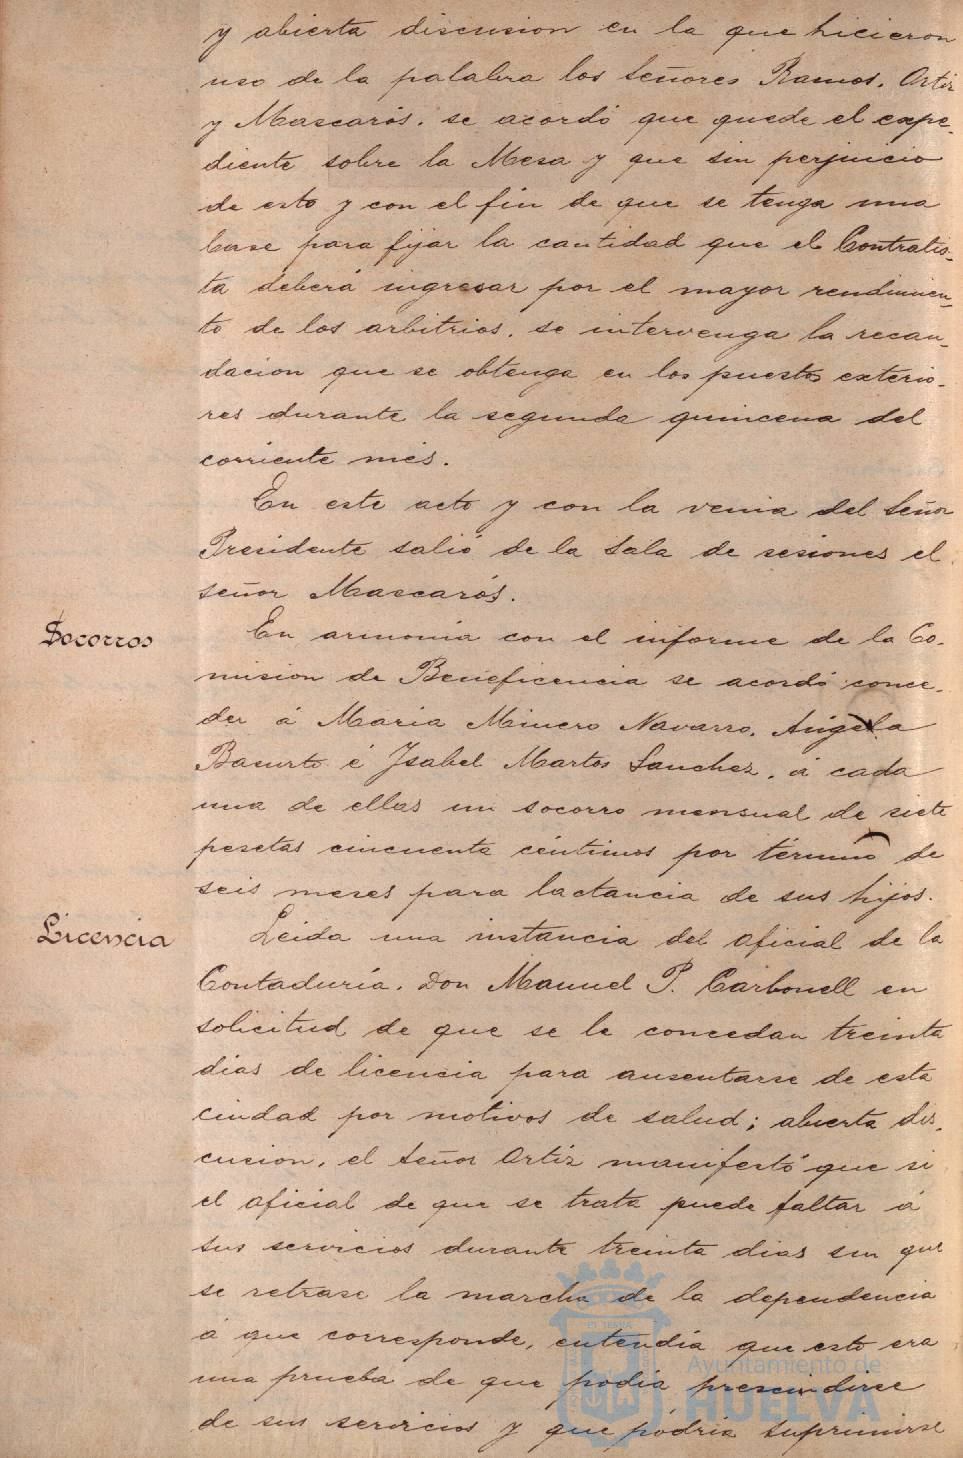 y abierta discusion en la que hicieron
uso de la palabra los Señores Ramos, Ortiz
y Mascarós, se acordó que quede el expe-
diente sobre la Mesa y que sin perjuicio
de esto y con el fin de que se tenga una
base para fijar la cantidad que el Contratis-
ta deberá ingresar por el mayor rendimien-
to de los arbitrios, se intervenga la recau-
dacion que se obtenga en los puestos exterio-
res durante la segunda quincena del
corriente més.
En este acto y con la venia del Señor
Presidente salió de la Sala de sesiones el
señor Mascarós.
Socorros
En armonia con el informe de la Co-
mision de Beneficencia se acordó conce-
der á Maria Minero Navarro, Angela
Basurto é Ysabel Martos Sanchez, á cada
una de ellas un socorro mensual de siete
pesetas cincuenta céntimos por término de
seis meses para lactancia de sus hijos.
Licencia
Leida una instancia del oficial de la
Contaduría, Don Manuel P. Carbonell en
solicitud de que se le concedan treinta
dias de licencia para ausentarse de esta
ciudad por motivos de salud; abierta dis-
cusion, el Señor Ortiz manifestó que si
el oficial de que se trata puede faltar á
sus servicios durante treinta dias sin que
se retrase la marcha de la dependencia
á que corresponde, entendía que esto era
una prueba de que podia prescindirse
de sus servicios y que podria suprimirse
Ayuntamiento de
HUELVA